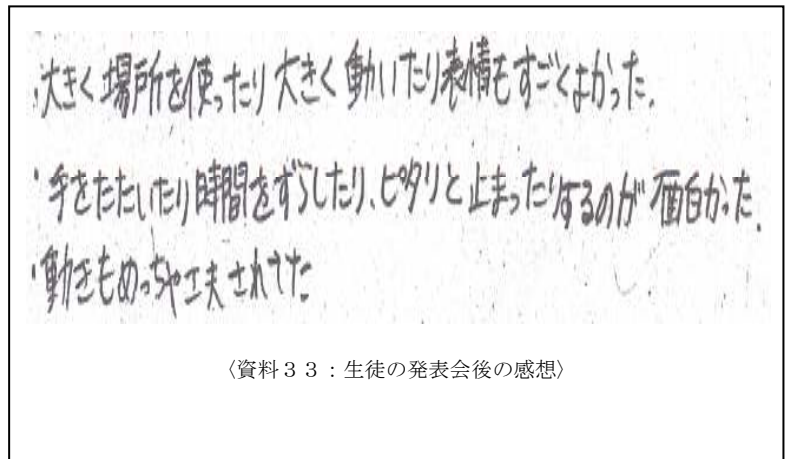 ・大きく場所を使ったり大きく動いたり表情もすごくよかった。
・手をたたいたり時間をずらしたり、ピタリと止まったりするのが面白かった。
・動きもめっちゃ工夫されてた
〈資料３３：生徒の発表会後の感想〉